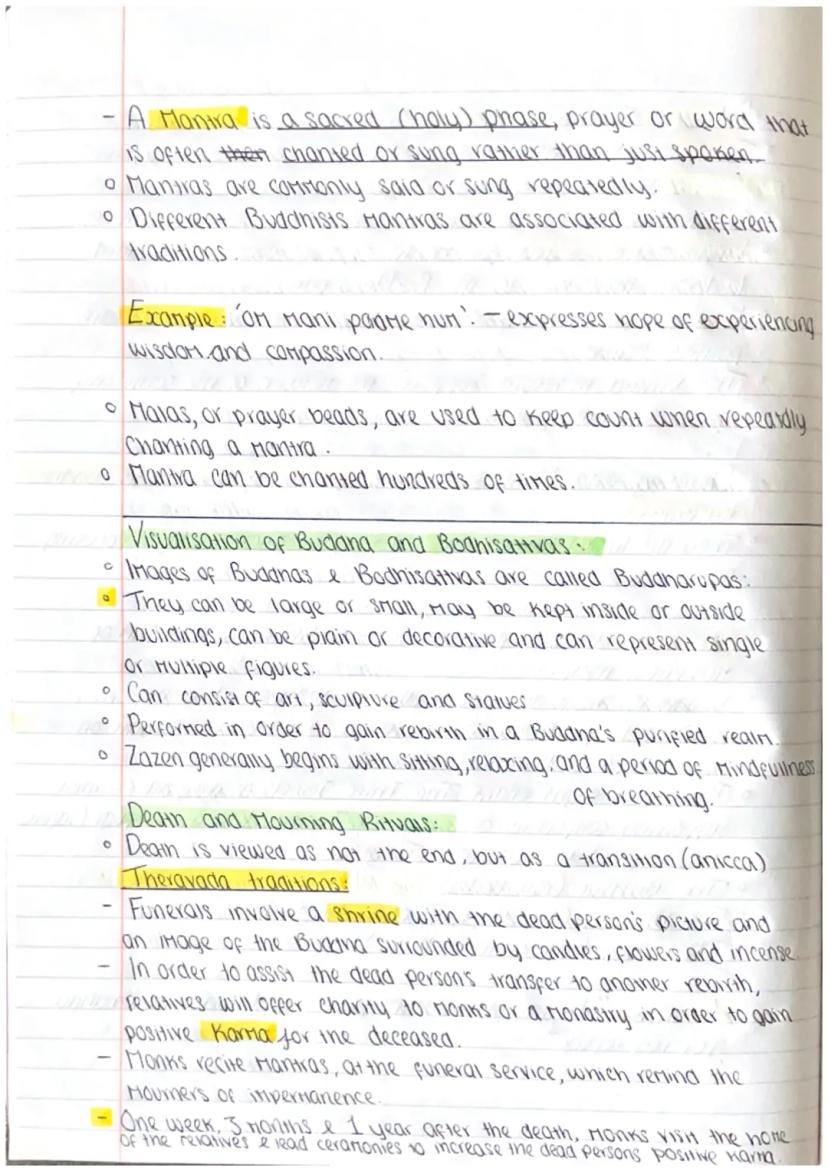 - A Mantra is a sacred (holy) phase, prayer or word that
is often then chanted or sung rather than just spoken.
o Mantras are commonly said or sung repeatedly.
o Different Buddhists Mantras are associated with different
traditions.
Example: 'om Mani padme hum'. - expresses hope of experiencing
wisdom and compassion.
o Malas, or prayer beads, are used to keep count when repeatdly
Chanting a mantra.
o Mantra can be chanted hundreds of times.
Visualisation of Buddha and Bodhisattvas.
o Images of Buddhas & Bodhisattvas are called Buddharupas:
o They can be large or small, may be kept inside or outside
buildings, can be plain or decorative and can represent single
or multiple figures.
o Can consist of art, sculpture and statues
o Performed in order to gain rebirth in a Buddha's purified realm.
o Zazen generally begins with sitting, relaxing, and a period of mindfullness
of breathing.
Death and Mourning Rituals:
o Death is viewed as not the end, but as a transition (anicca)
Theravada traditions:
- Funerals involve a shrine with the dead person's picture and
an image of the Buddha surrounded by candles, flowers and incense
- In order to assist the dead persons transfer to another rebirth,
relatives will offer charity to monks or a monastry in order to gain
positive Karma for the deceased.
- Monks recite mantras, at the funeral service, which remind the
mourners of impermanence.
- One week, 3 months & 1 year after the death, monks visit the home
of the relatives & lead ceramonies to increase the dead persons positive karma.